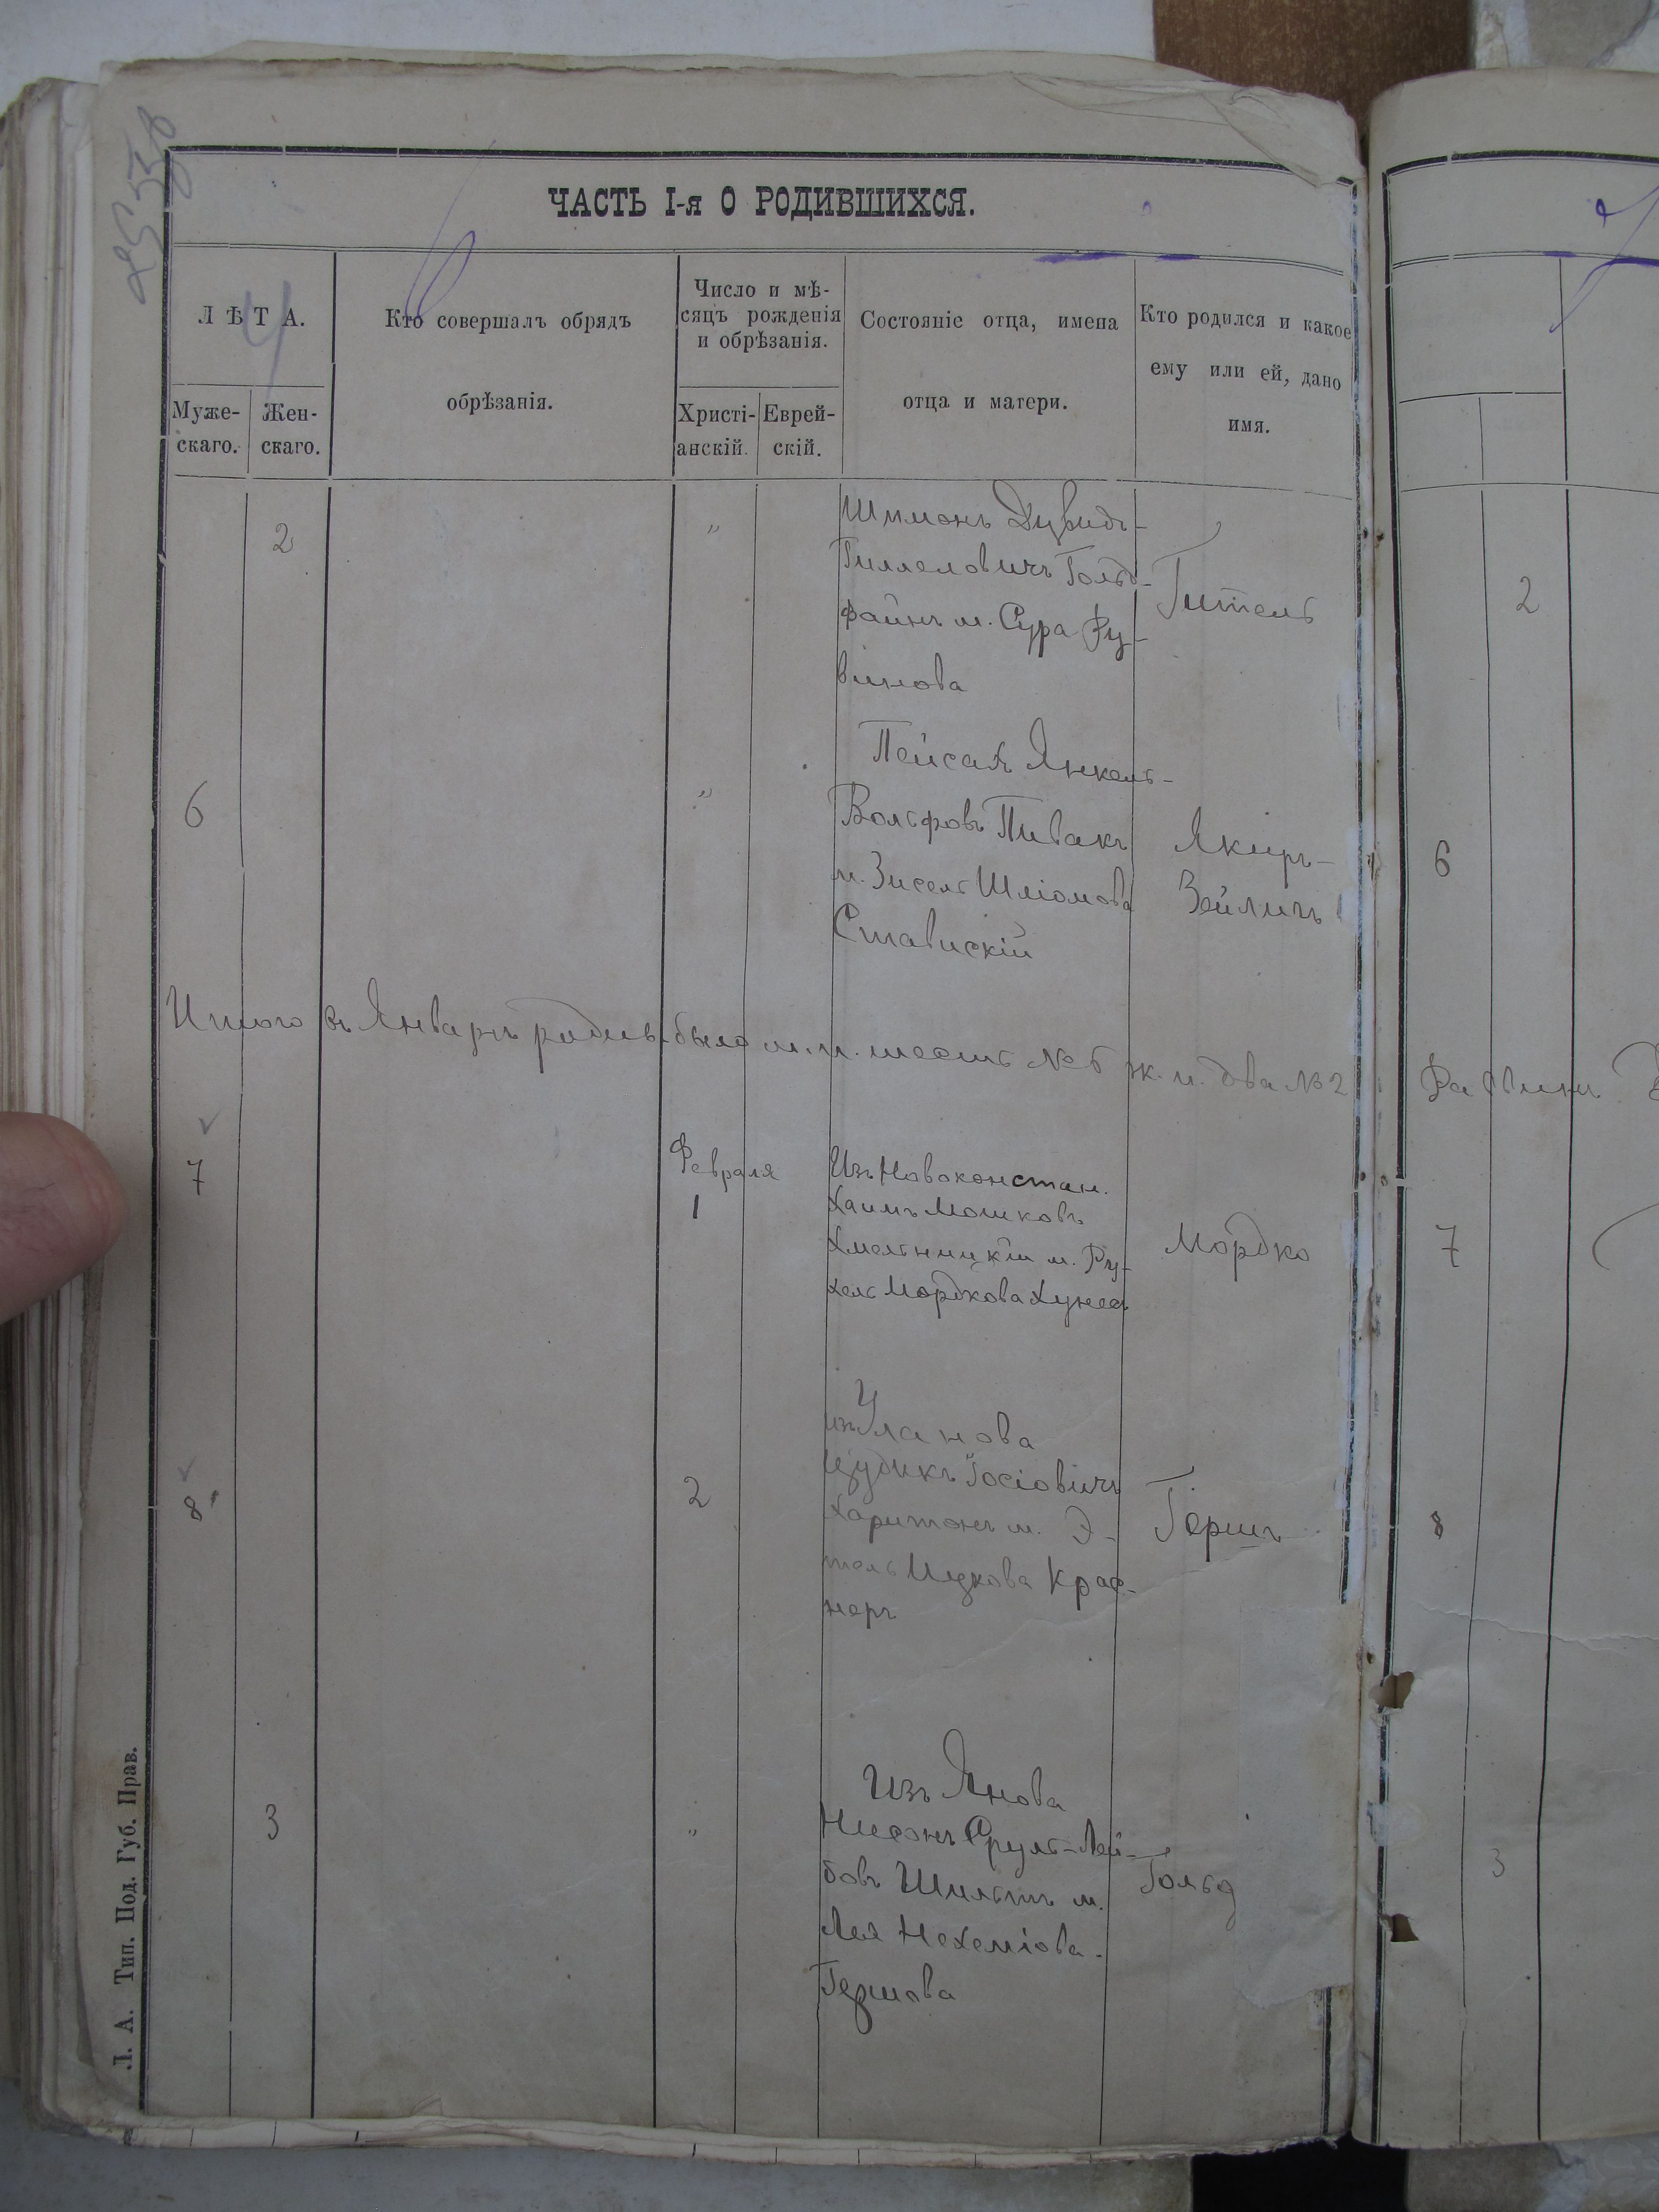 ЧАСТЬ I-я О РОДИВШИХСЯ.
ЛѢТА.
Муже-
скаго.
Жен-
скаго.
Кто совершалъ обрядъ
обрѣзанія.
Число и мѣ-
сяцъ рожденія
и обрѣзанія.
Христі-
анскій.
Еврей-
скій.
Состояніе отца, имена
отца и матери.
Кто родился и какое
ему или ей, дано
имя.
2
"
Шимонъ Дувидъ-
Гиллеловичъ Гольд-
файнъ м. Сура Ру-
винова
Гитель
2
6
"
Пейсахъ Янкель-
Вольфовъ Пивакъ
м. Зисель Шліомова
Ставискій
Якиръ-
Зейличъ
6
Итого въ Январѣ родив. было м. п. шесть №6 ж. п. два №2
Раввинъ
7
Февраля
1
Изъ Новоконстан.
Хаимъ Мошковъ
Хмельницкій м. Ру-
хель Мордкова Хунесъ
Мордко
7
8
2
изъ Уланова
Іосіовичъ
Харитонъ м. Э-
тель Ицкова Крас-
неръ
Гершъ
8
3
"
Изъ Янова
Нисонъ Сруль-Лей-
бовъ Шильтъ м.
Лея Нехеміова-
Гершова
Гольда
3
Л. А. Тип. Под. Губ. Прав.